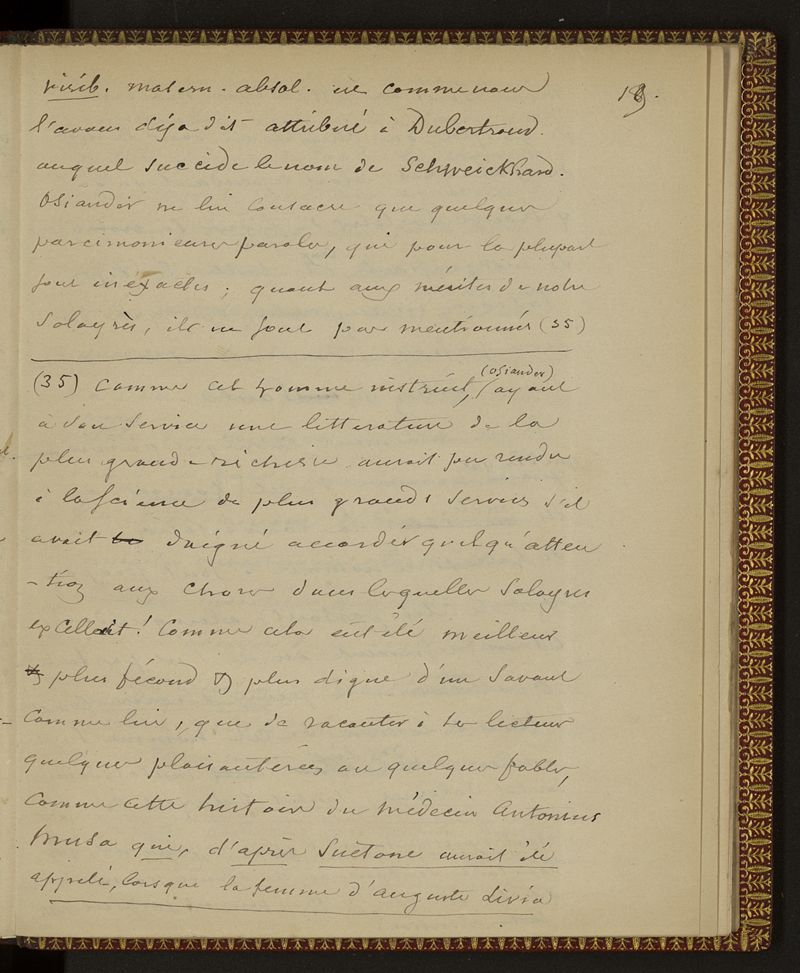 virib. matern. absol. est comme nous
19.
l'avons déja dit attribué à Dubertrand.
auquel succède le nom de Schweickhard.
Osiander ne lui consacre que quelques
parcimonieuses paroles, qui pour la plupart
sont inéxactes ; quant aux mérites de notre
Solayrès, ils ne sont pas mentionnés (35)
(35) Comme cet homme instruit, (Osiander) ayant
à son service une litterature de la
plus grande richesse aurait pu rendre
à la science de plus grands services s'il
avait daigné accorder quelqu'atten
-tion aux choses dans lesquelles Solayres
excellait ! Comme cela eut été meilleur
plus fécond & plus digne d'un Savant
comme lui, que de raconter à ses lecteurs
quelques plaisanteries ou quelques fables,
comme cette histoire du médecin Antonius
Musa qui, d'après Suétone aurait été
appelé, lorsque la femme d'auguste Livia